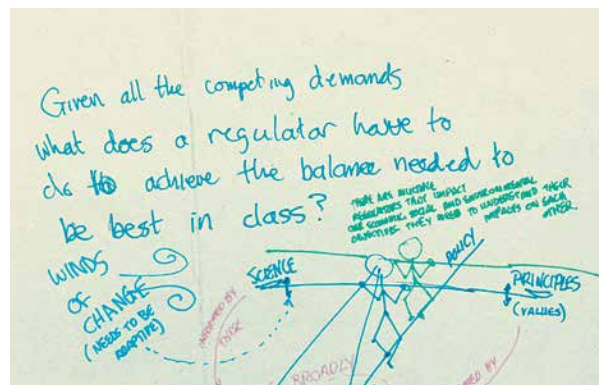 Given all the competing demands
what does a regulator have to
do to achieve the balance needed to
be best in class?
THERE ARE MULTIPLE
REGULATORS THAT IMPACT
OUR ECONOMIC, SOCIAL AND ENVIRONMENTAL
OBJECTIVES. THEY NEED TO UNDERSTAND THEIR
IMPACTS ON EACH
OTHER.
WINDS
OF
CHANGE
(NEEDS TO BE
ADAPTIVE)
SCIENCE
POLICY
PRINCIPLES
(VALUES)
INFORMED BY
THESE
BROADLY
BY